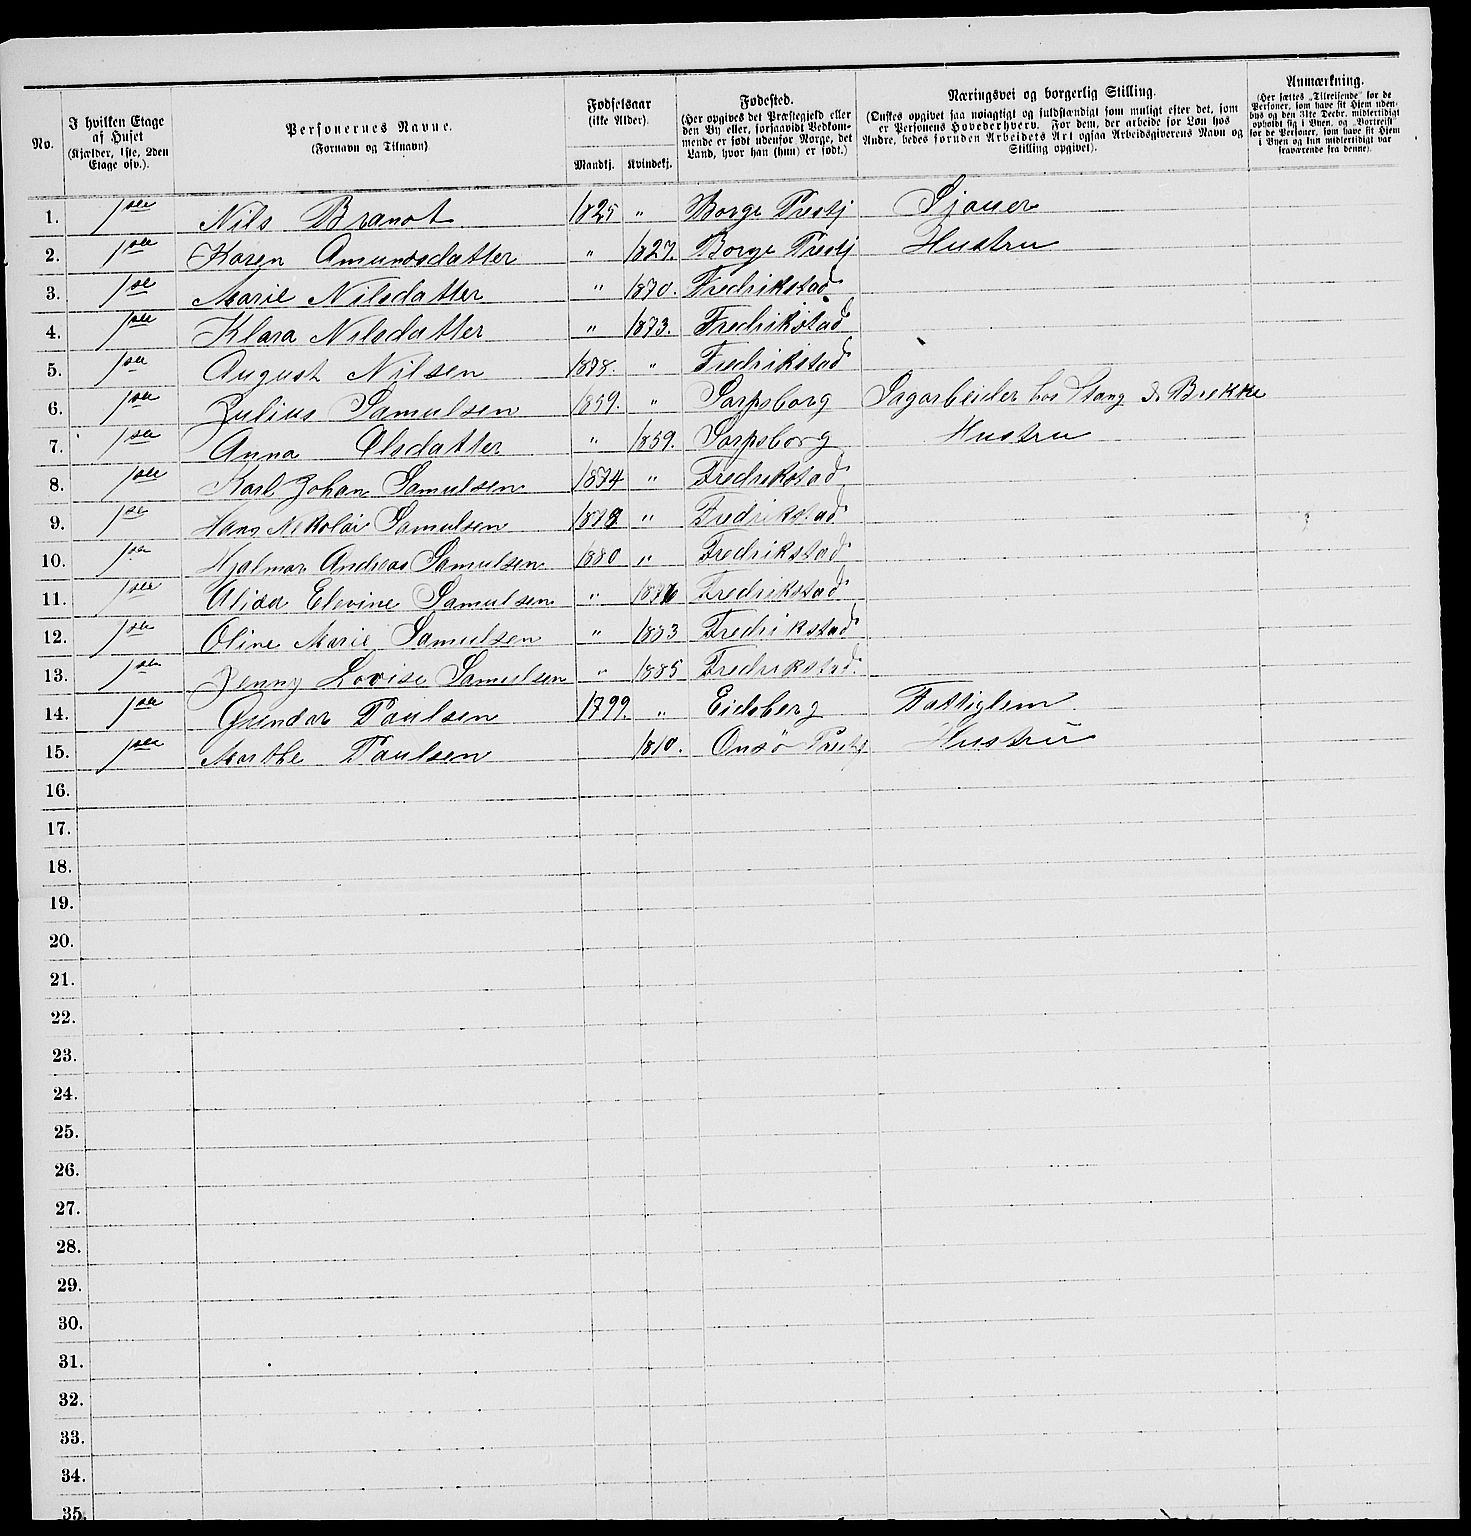 No.
I hvilken Etage af Huset (Kjælder, 1ste, 2den Etage osv.).
Personernes Navne. (Fornavn og Tilnavn)
Fødselsaar (ikke Alder). Mandkj. Kvindekj.
Fødested. (Her opgives det Præstegjeld eller den By eller, forsaavidt Vedkommende er født udenfor Norge, det Land, hvor han (hun) er født.)
Næringsvei og borgerlig Stilling. (Ønskes opgivet saa nøiagtigt og fuldstændigt som muligt efter det, som er Personens Hovederhverv. For dem, der arbeide for Løn hos Andre, bedes foruden Arbeidets Art ogsaa Arbeidsgiverens Navn og Stilling opgivet).
Anmærkning. (Her sættes „Tilreisende" for de Personer, som have sit Hjem udenbys og den 31te Decbr. midlertidigt opholdt sig i Byen, og „Bortreist" for de Personer, som have sit Hjem i Byen og kun midlertidigt var fraværende fra denne).
1. 1ste Nils Brandt 1825 " Borge Prestj Sjouer
2. 1ste Karen Amundsdatter " 1827. Borge Prestj Hustru
3. 1ste Marie Nilsdatter " 1870. Fredrikstad
4. 1ste Klara Nilsdatter " 1873. Fredrikstad
5. 1ste August Nilsen 1878. " Fredrikstad
6. 1ste Julius Samulsen 1859. " Sarpsborg Sagarbeider hos Stang & Brekke
7. 1ste Anna Olsdatter " 1859. Sarpsborg Hustru
8. 1ste Karl Johan Samulsen 1874 " Fredrikstad
9. 1ste Hans Nikolai Samulsen 1878 " Fredrikstad
10. 1ste Hjalmar Andreas Samulsen 1880 " Fredrikstad
11. 1ste Alida Elevine Samulsen " Fredrikstad
12. 1ste Oline Marie Samulsen " 1883 Fredrikstad
13. 1ste Jenny Lovise Samulsen " 1885 Fredrikstad.
14. 1ste Gundar Paulsen 1799. " Eidsberg Fattiglem
15. 1ste Marthe Paulsen 1810. Onsö Prestj Hustru
16.
17.
18.
19.
20.
21.
22.
23.
24.
25.
26.
27.
28.
29.
30.
31.
32.
33.
34.
35.